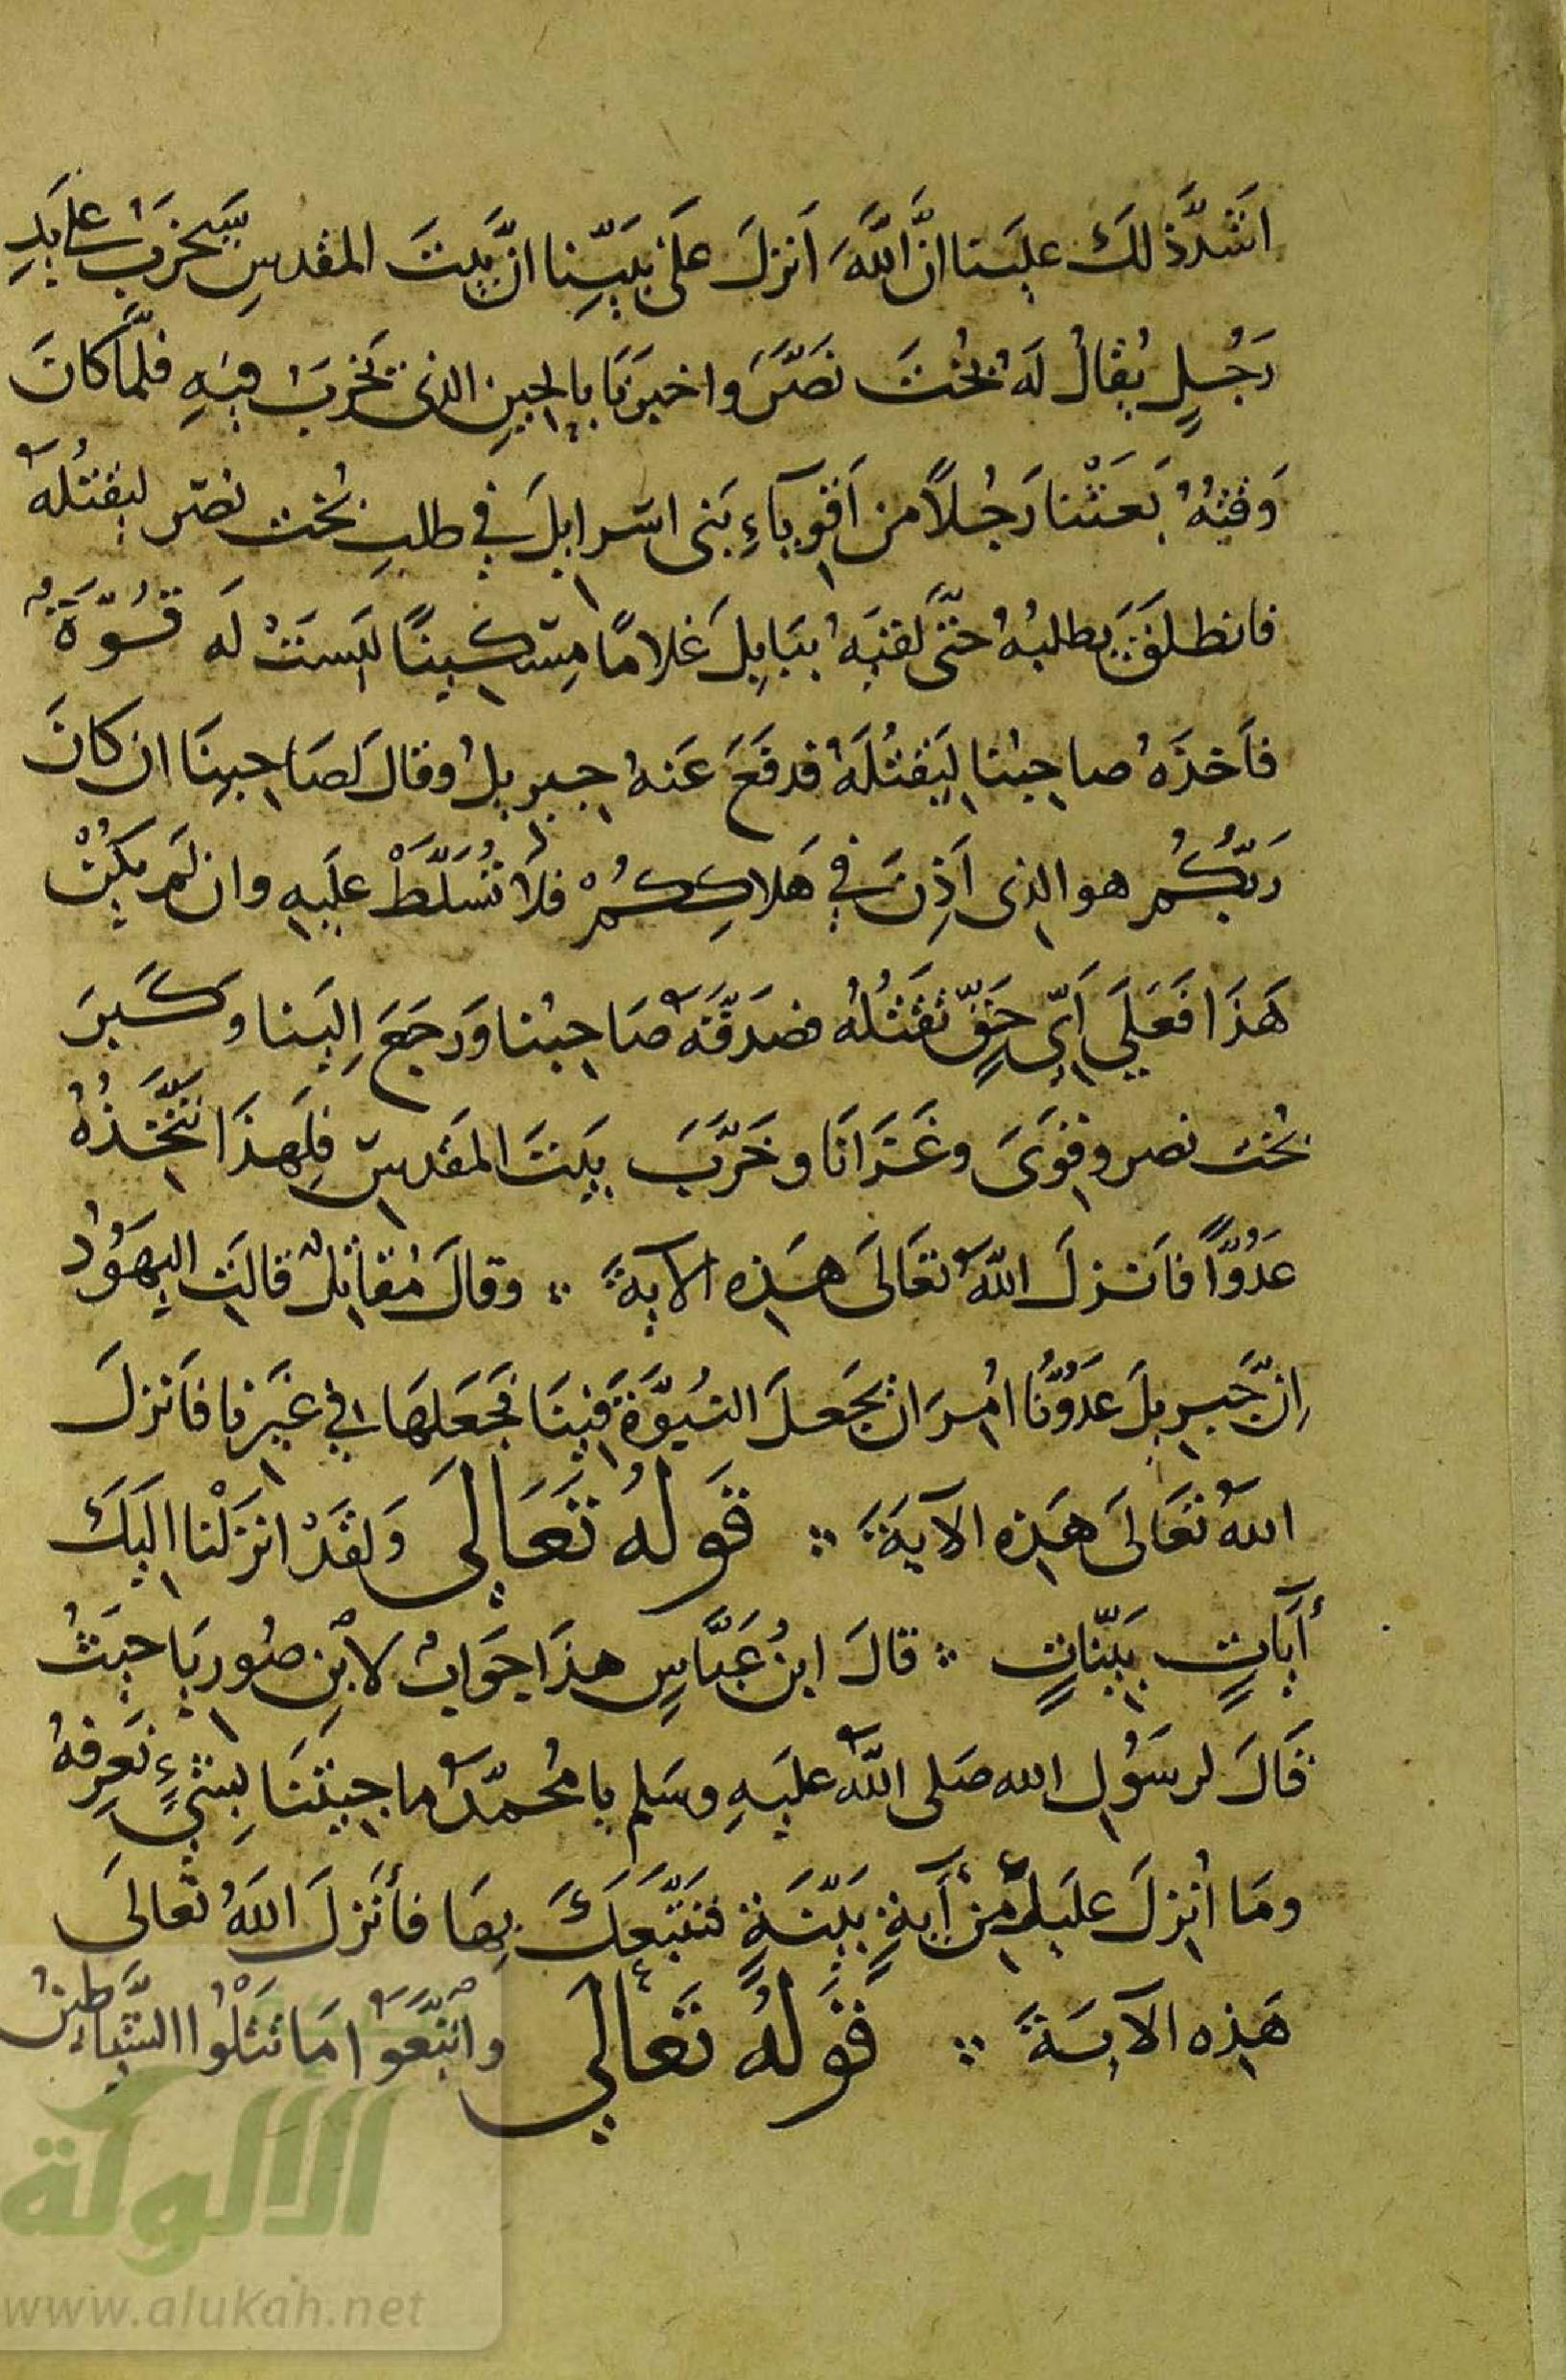 اشدّ ذلك علينا انّ اللّهَ اَنزلَ عَلى نبيّنا انّ بيتَ المقدسِ سيخرَبُ على يَدِ
رَجُلٍ يُقالُ لَهُ بُختَ نصّرَ واخبرَنا بالحِينِ الذى يخرَبُ فيهِ فلمّا كانَ
وَقتُهُ بَعَثْنا رَجُلاً من اَقوِيآءِ بَنى اسرايلَ في طلبِ بُخت نصّر ليقتُلَه
فانطلقَ يطلبُهُ حتّى لقيَهُ ببَابِلَ غلامًا مِسْكينًا ليسَتْ لَه قُوّةٌ
فاَخذَهُ صاحِبُنا ليَقتُلَهُ فدفَعَ عَنهُ جبريلُ وقالَ لصَاحِبِنَا ان كانَ
رَبّكُم هو الذى اَذِنَ في هَلاكِكُمْ فلا تُسَلَّطْ علَيهِ وان لَم يكُنْ
هَذَا فَعَلَي اَيّ حَقٍّ تَقتُلُه فصَدقَّه صَاحِبُنا وَرجَعَ اِلينا وكَبرَ
بُخت نصر وقوَىَ وغَزَانَا وخَرَّبَ بيَتَ المقَدسِ فلِهذَا نتّخذُهُ
عَدُوّاً فاَنزلَ اللّه تعَالىَ هَذِه الآيةَ ؞ وقالَ مُقاتلٌ قالتِ اليهَوُد
اِنّ جَبريلَ عدَوُّنا اُمرَ ان يجَعلَ النبُوّةَ فينَا فجَعَلهَا في غيَرنا فاَنزلَ
اللّهُ تعَالىَ هَذِه الآيةَ ؞ قَولُه تَعَالىَ وَلقَدْ انزَلْنا اليكَ
أيَاتٍ بيّناتٍ ؞ قالَ ابنُ عَبَّاسٍ هذَا جَوابٌ لابنِ صُوريَا حيَثُ
قَالَ لرسَوُلِ الله صَلى اللّه عليَهِ وسَلم يا مُحمّدُ ما جيتَنَا بِشَيءٍ نَعرِفهُ
ومَا اُنزِلَ عليَك مِن آيَةٍ بيّنَةٍ فنَتّبَعَكَ بِهَا فأنَزلَ اللّهُ تَعالىَ
هَذِه الآيةَ ؞ قَولُهُ تَعَالى واتّبَعَوُا مَا تَتْلُوا الشّيَاطِينُ
الألوكة
www.alukah.net